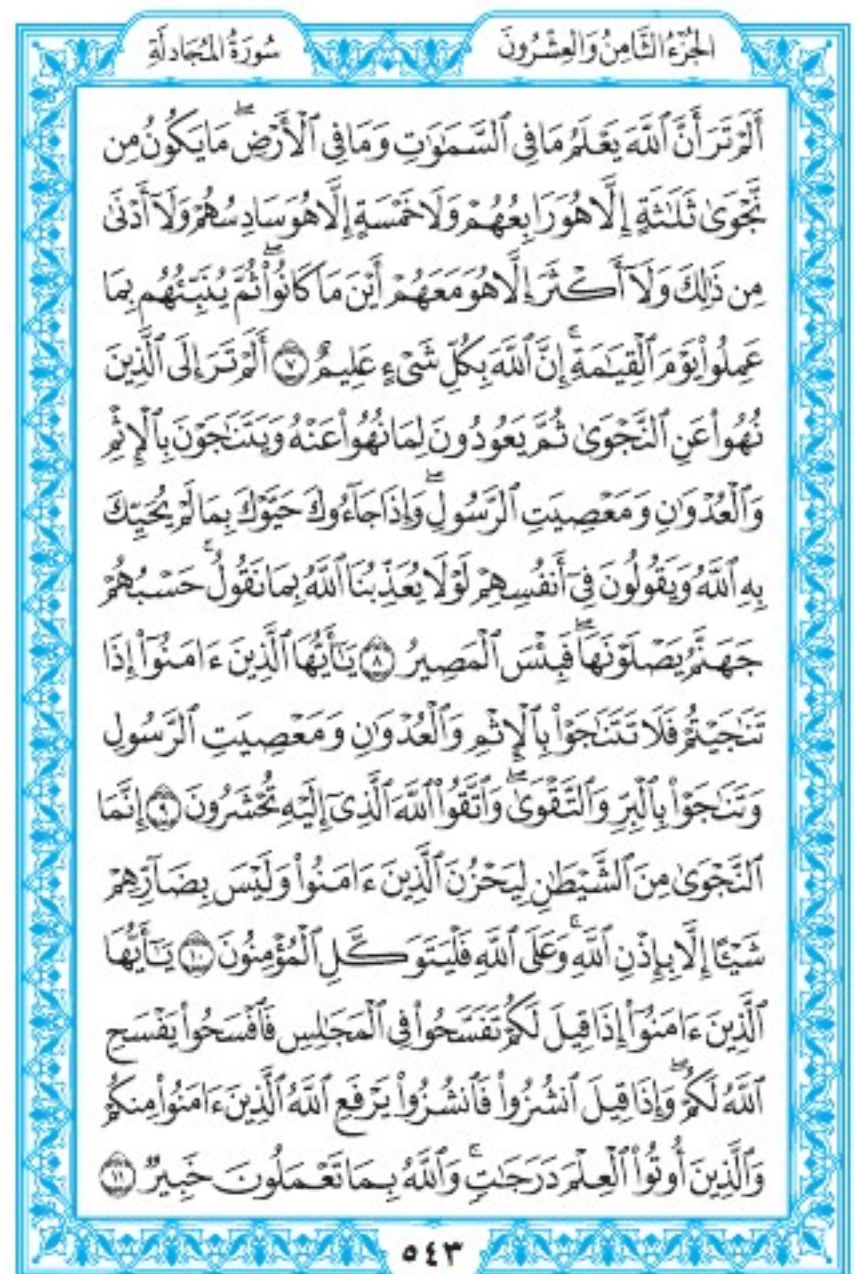 الجُزْءُ الثَّامِنُ وَالعِشْرُونَ
سُورَةُ المُجَادلَةِ
أَلَمْ تَرَ أَنَّ ٱللَّهَ يَعْلَمُ مَا فِي ٱلسَّمَٰوَٰتِ وَمَا فِي ٱلْأَرْضِۖ مَا يَكُونُ مِن
نَّجْوَىٰ ثَلَٰثَةٍ إِلَّا هُوَ رَابِعُهُمْ وَلَا خَمْسَةٍ إِلَّا هُوَ سَادِسُهُمْ وَلَآ أَدْنَىٰ
مِن ذَٰلِكَ وَلَآ أَكْثَرَ إِلَّا هُوَ مَعَهُمْ أَيْنَ مَا كَانُواْۖ ثُمَّ يُنَبِّئُهُم بِمَا
عَمِلُواْ يَوْمَ ٱلْقِيَٰمَةِۚ إِنَّ ٱللَّهَ بِكُلِّ شَىْءٍ عَلِيمٌ ٧ أَلَمْ تَرَ إِلَى ٱلَّذِينَ
نُهُواْ عَنِ ٱلنَّجْوَىٰ ثُمَّ يَعُودُونَ لِمَا نُهُواْ عَنْهُ وَيَتَنَٰجَوْنَ بِٱلْإِثْمِ
وَٱلْعُدْوَٰنِ وَمَعْصِيَتِ ٱلرَّسُولِۖ وَإِذَا جَآءُوكَ حَيَّوْكَ بِمَا لَمْ يُحَيِّكَ
بِهِ ٱللَّهُ وَيَقُولُونَ فِىٓ أَنفُسِهِمْ لَوْلَا يُعَذِّبُنَا ٱللَّهُ بِمَا نَقُولُۚ حَسْبُهُمْ
جَهَنَّمُ يَصْلَوْنَهَاۖ فَبِئْسَ ٱلْمَصِيرُ ٨ يَٰٓأَيُّهَا ٱلَّذِينَ ءَامَنُوٓاْ إِذَا
تَنَٰجَيْتُمْ فَلَا تَتَنَٰجَوْاْ بِٱلْإِثْمِ وَٱلْعُدْوَٰنِ وَمَعْصِيَتِ ٱلرَّسُولِ
وَتَنَٰجَوْاْ بِٱلْبِرِّ وَٱلتَّقْوَىٰۖ وَٱتَّقُواْ ٱللَّهَ ٱلَّذِىٓ إِلَيْهِ تُحْشَرُونَ ٩ إِنَّمَا
ٱلنَّجْوَىٰ مِنَ ٱلشَّيْطَٰنِ لِيَحْزُنَ ٱلَّذِينَ ءَامَنُواْ وَلَيْسَ بِضَآرِّهِمْ
شَيْـًٔا إِلَّا بِإِذْنِ ٱللَّهِۚ وَعَلَى ٱللَّهِ فَلْيَتَوَكَّلِ ٱلْمُؤْمِنُونَ ١٠ يَٰٓأَيُّهَا
ٱلَّذِينَ ءَامَنُوٓاْ إِذَا قِيلَ لَكُمْ تَفَسَّحُواْ فِى ٱلْمَجَٰلِسِ فَٱفْسَحُواْ يَفْسَحِ
ٱللَّهُ لَكُمْۖ وَإِذَا قِيلَ ٱنشُزُواْ فَٱنشُزُواْ يَرْفَعِ ٱللَّهُ ٱلَّذِينَ ءَامَنُواْ مِنكُمْ
وَٱلَّذِينَ أُوتُواْ ٱلْعِلْمَ دَرَجَٰتٍۚ وَٱللَّهُ بِمَا تَعْمَلُونَ خَبِيرٌ ١١
٥٤٣